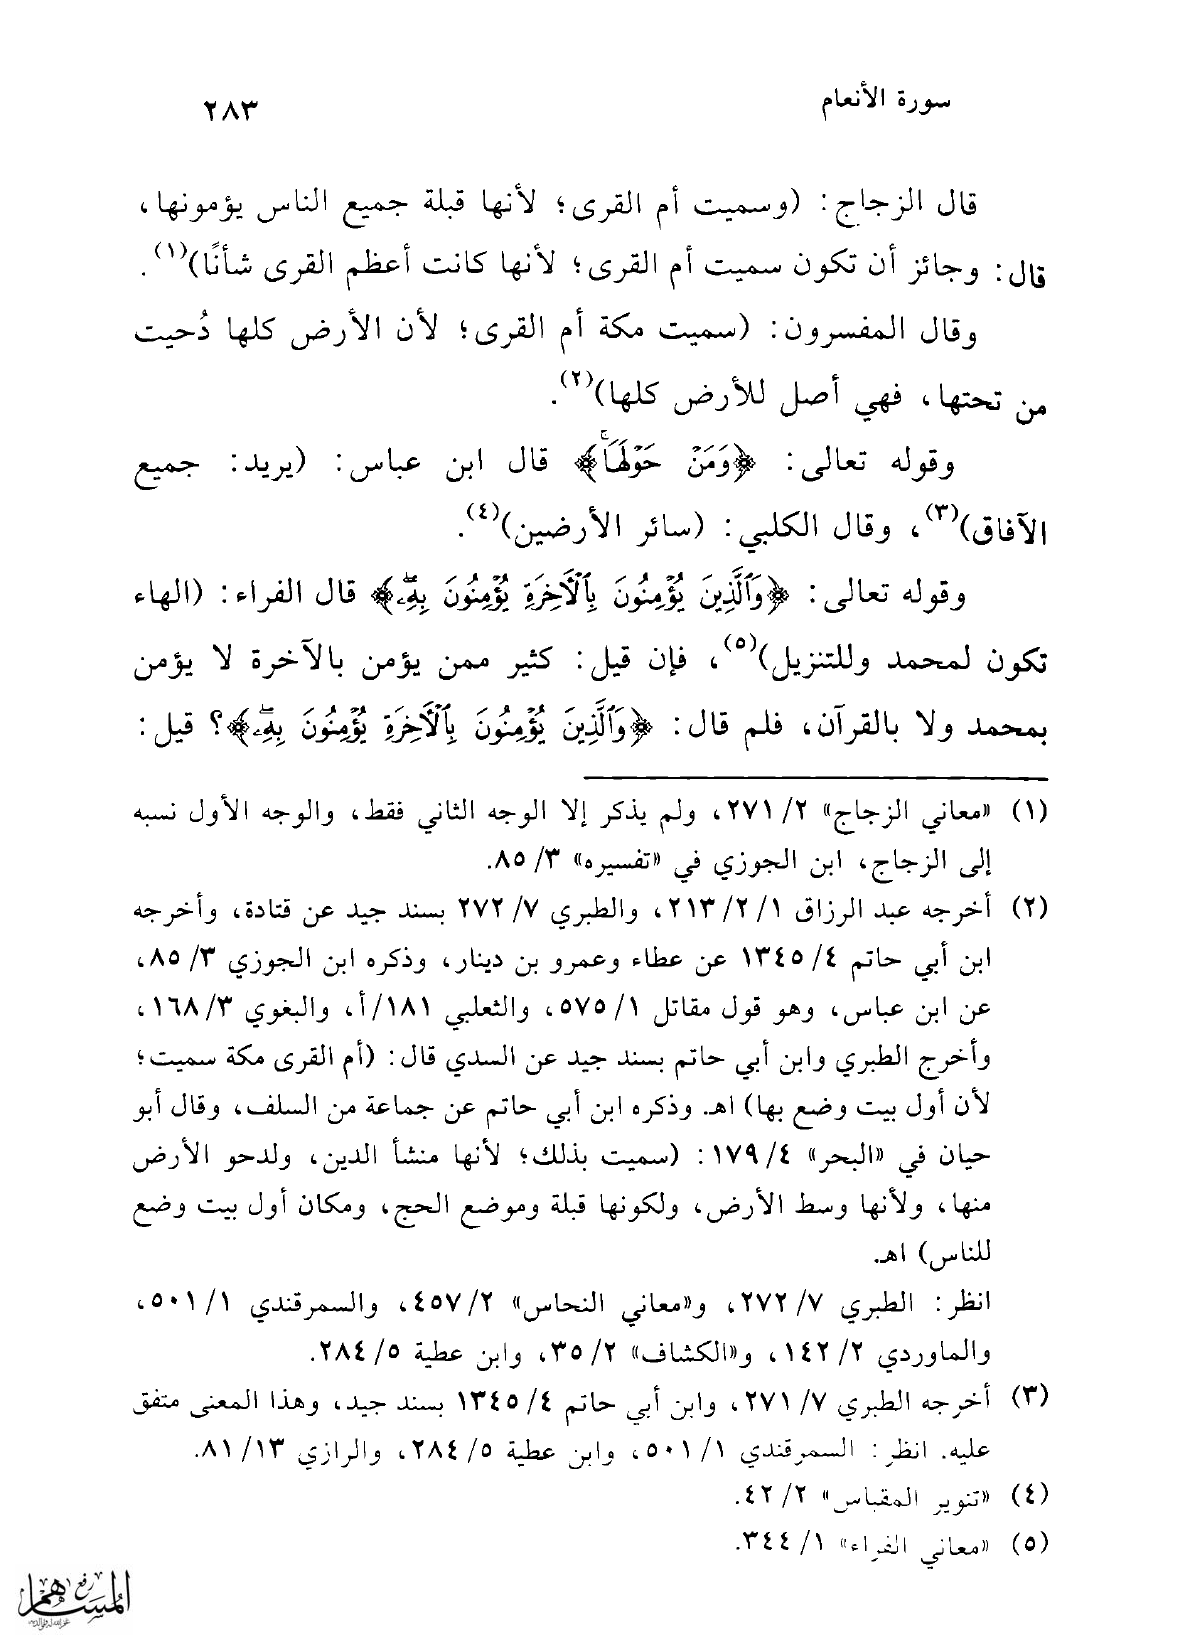 سورة الأنعام
٢٨٣
قال الزجاج: (وسميت أم القرى؛ لأنها قبلة جميع الناس يؤمونها،
قال: وجائز أن تكون سميت أم القرى؛ لأنها كانت أعظم القرى شأنًا)(١).
وقال المفسرون: (سميت مكة أم القرى؛ لأن الأرض كلها دُحيت
من تحتها، فهي أصل للأرض كلها)(٢).
وقوله تعالى: ﴿وَمَنْ حَوْلَهَا﴾ قال ابن عباس: (يريد: جميع
الآفاق)(٣)، وقال الكلبي: (سائر الأرضين)(٤).
وقوله تعالى: ﴿وَالَّذِينَ يُؤْمِنُونَ بِالْآخِرَةِ يُؤْمِنُونَ بِهِ﴾ قال الفراء: (الهاء
تكون لمحمد وللتنزيل)(٥)، فإن قيل: كثير ممن يؤمن بالآخرة لا يؤمن
بمحمد ولا بالقرآن، فلم قال: ﴿وَالَّذِينَ يُؤْمِنُونَ بِالْآخِرَةِ يُؤْمِنُونَ بِهِ﴾؟ قيل:
(١) «معاني الزجاج» ٢/ ٢٧١، ولم يذكر إلا الوجه الثاني فقط، والوجه الأول نسبه
إلى الزجاج، ابن الجوزي في «تفسيره» ٣/ ٨٥.
(٢) أخرجه عبد الرزاق ١/ ٢/ ٢١٣، والطبري ٧/ ٢٧٢ بسند جيد عن قتادة، وأخرجه
ابن أبي حاتم ٤/ ١٣٤٥ عن عطاء وعمرو بن دينار، وذكره ابن الجوزي ٣/ ٨٥،
عن ابن عباس، وهو قول مقاتل ١/ ٥٧٥، والثعلبي ١٨١/ أ، والبغوي ٣/ ١٦٨،
وأخرج الطبري وابن أبي حاتم بسند جيد عن السدي قال: (أم القرى مكة سميت؛
لأن أول بيت وضع بها) اهـ. وذكره ابن أبي حاتم عن جماعة من السلف، وقال أبو
حيان في «البحر» ٤/ ١٧٩: (سميت بذلك؛ لأنها منشأ الدين، ولدحو الأرض
منها، ولأنها وسط الأرض، ولكونها قبلة وموضع الحج، ومكان أول بيت وضع
للناس) اهـ.
انظر: الطبري ٧/ ٢٧٢، و«معاني النحاس» ٢/ ٤٥٧، والسمرقندي ١/ ٥٠١،
والماوردي ٢/ ١٤٢، و«الكشاف» ٢/ ٣٥، وابن عطية ٥/ ٢٨٤.
(٣) أخرجه الطبري ٧/ ٢٧١، وابن أبي حاتم ٤/ ١٣٤٥ بسند جيد، وهذا المعنى متفق
عليه. انظر: السمرقندي ١/ ٥٠١، وابن عطية ٥/ ٢٨٤، والرازي ١٣/ ٨١.
(٤) «تنوير المقباس» ٢/ ٤٢.
(٥) «معاني الفراء» ١/ ٣٤٤.